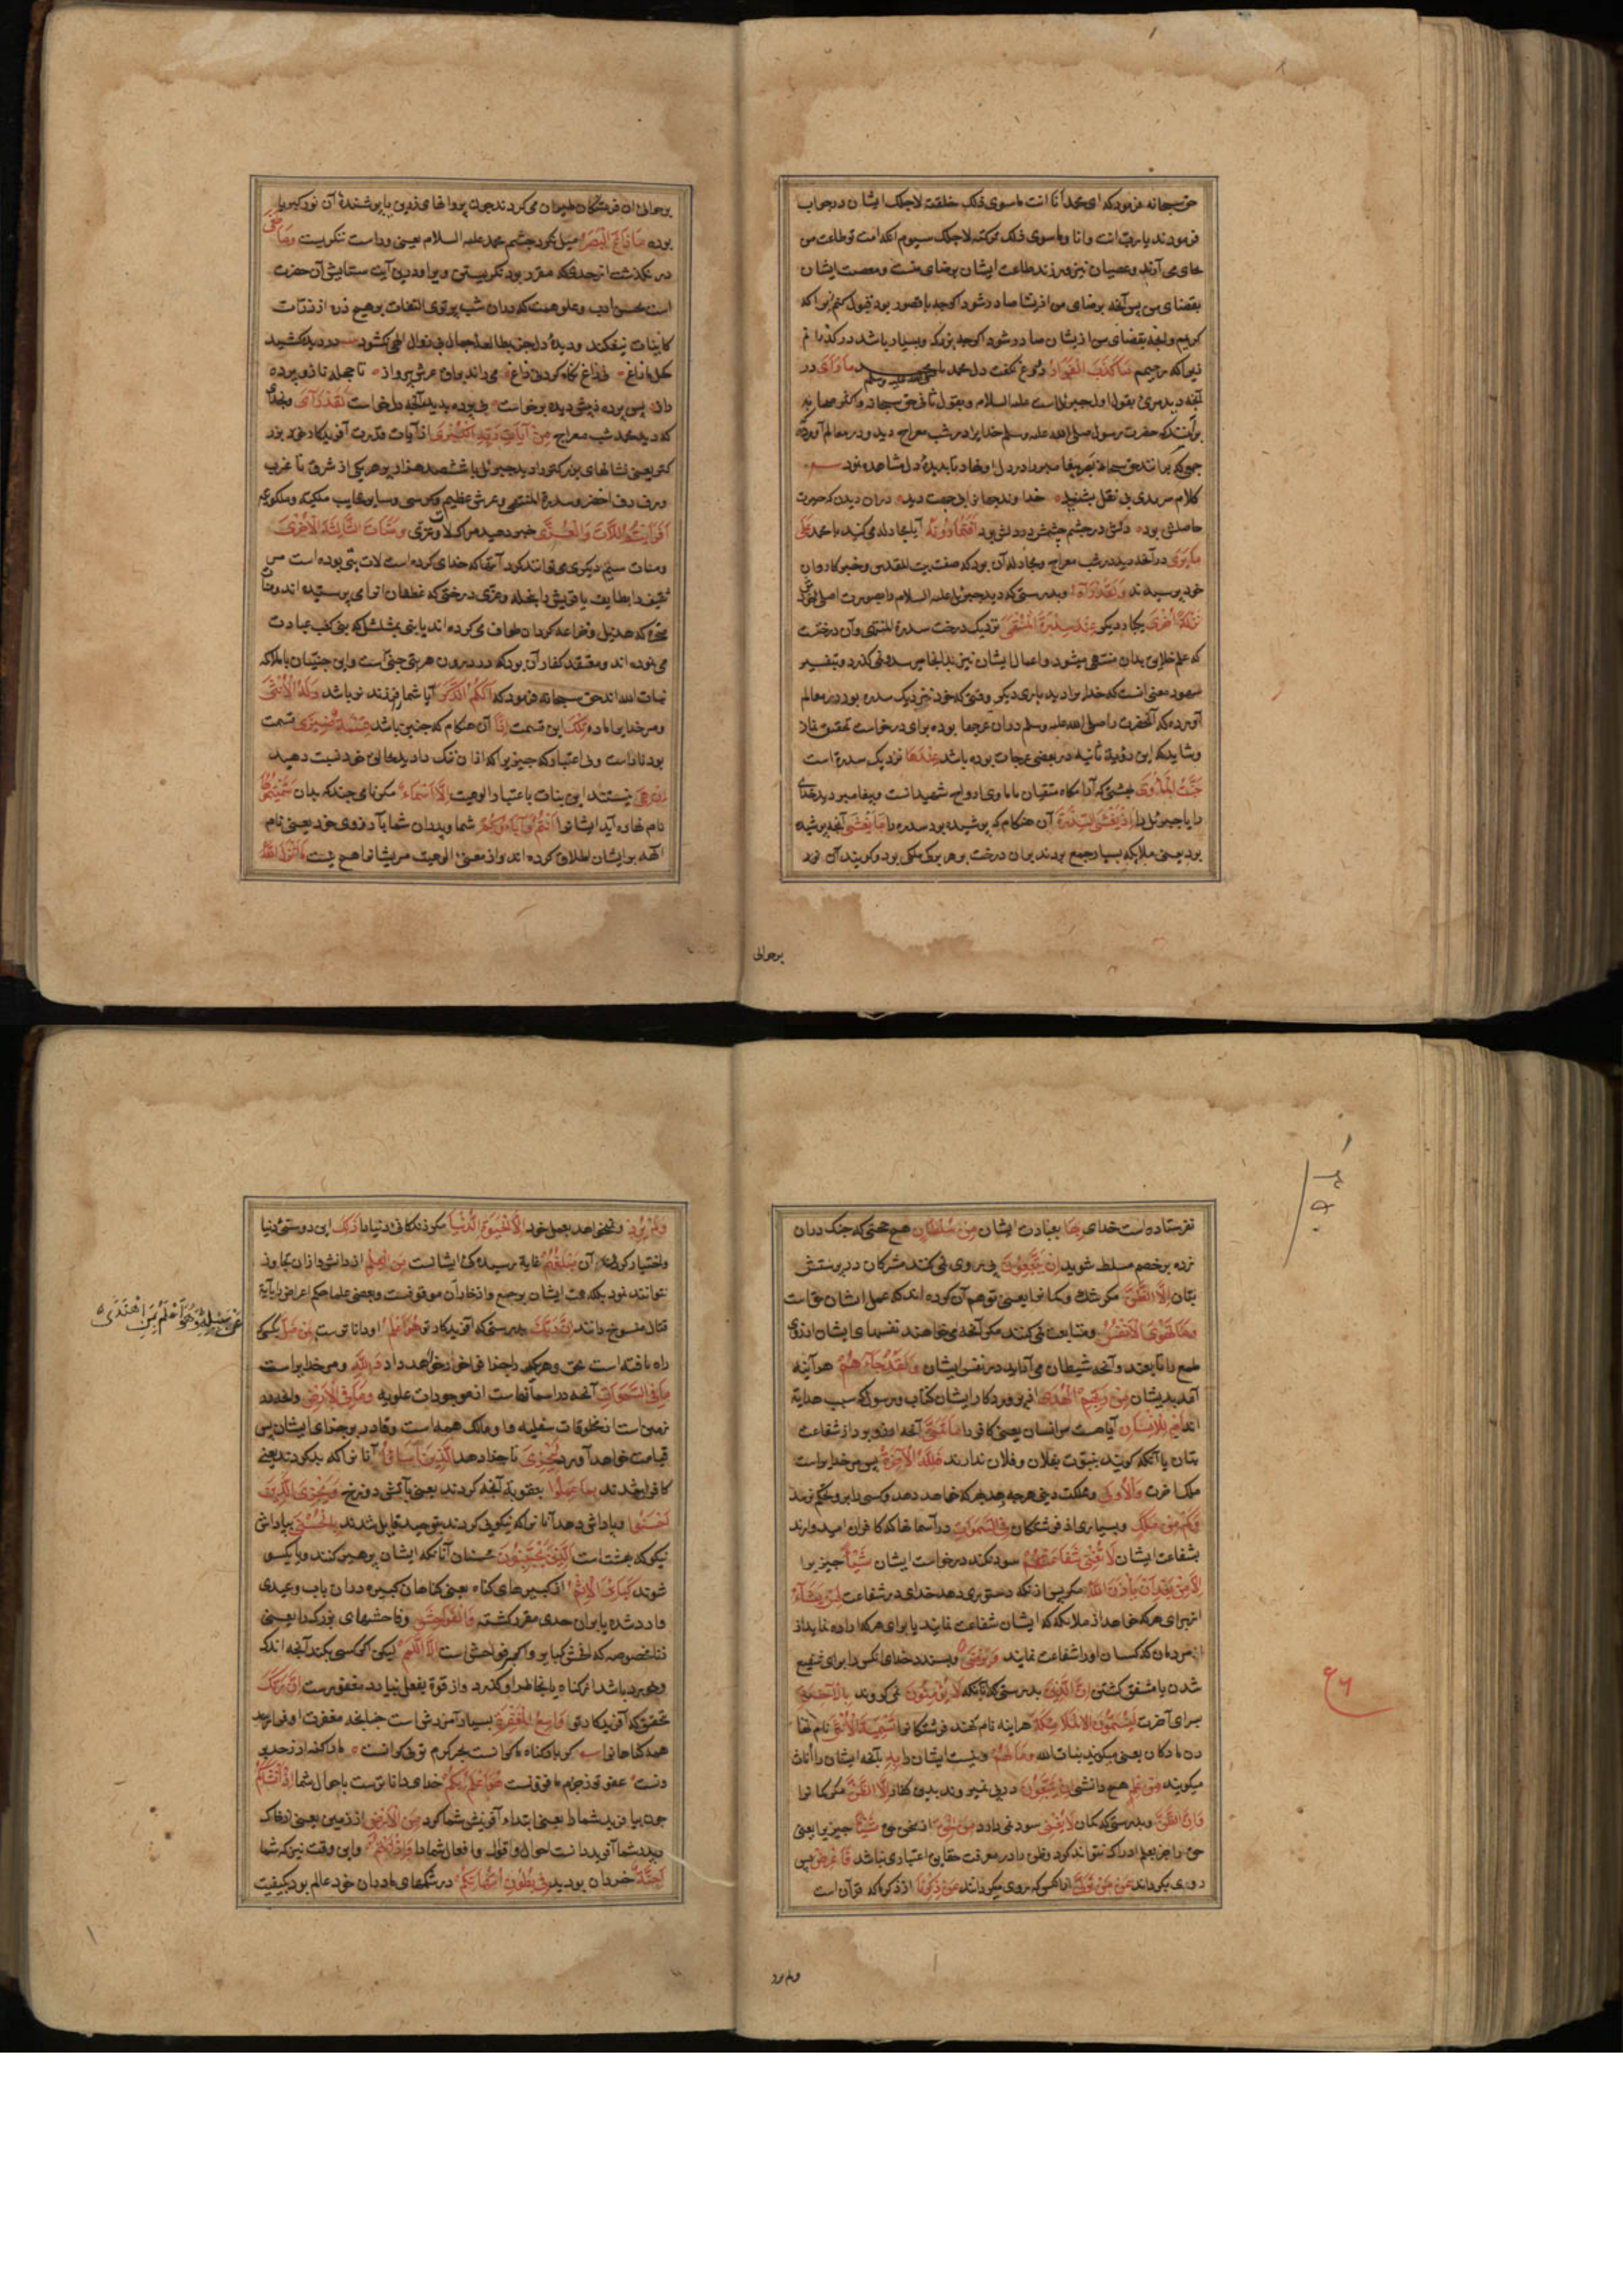 حق سبحانه فرمود که ای محمد أنا انت ماسوی ذلک خلقته لاجلک ایشان در جواب
فرمودند یا رب انت وانا وماسوی ذلک ترکته لاجلک سیوم آنکه امت تو طاعت من
بجای می آرند و عصیان نیز میورزند طاعت ایشان برضای منست و معصیت ایشان
بقضای من پس آنچه برضای من ازیشان صادر شود اگرچه با قصور بود قبول کنم زیرا که
کریمم و آنچه بقضای من ازیشان صادر شود اگرچه بزرک و بسیار باشد درگذرانم
زیرا که رحیمم مَا كَذَبَ الْفُؤَادُ دروغ نگفت دل محمد صلی الله علیه وسلم مَا رَأَى در
آنچه دید مرئ بقول اول جبرئیل است علیه السلام و بقول ثانی حق سبحانه و اکثر صحابه
برآنند که حضرت رسول صلی الله علیه وسلم خدا را در شب معراج دید و در معالم آورده
جمعی که برانند حق سبحانه بصر پیغامبر را در دل او نهاد تا بدیده دل مشاهده نمود
کلام سرمدی بی نقل بشنید خداوند جهان را بی جهت دید دران دیدن که حیرت
حاصلش بود دلش در چشم و چشمش در دلش بود أَفَتُمَارُونَهُ آیا مجادله می کنید با محمد عَلَى
مَا يَرَى در آنچه دید در شب معراج و مجادله آن بود که صفت بیت المقدس و خبر کاروان
خود پرسیدند وَلَقَدْ رَآهُ و بدرستی که دید جبرئیل علیه السلام را بصورت اصلی خودش
نَزْلَةً أُخْرَى یکبار دیگر عِنْدَ سِدْرَةِ الْمُنْتَهَى نزدیک درخت سدرة المنتهی و آن درختست
که علم خلایق بدان منتهی میشود و اعمال ایشان نیز بدانجا میرسد و نمی گذرد و بتفسیر
مشهود معنی آنست که خدا را دید باری دیگر وقتی که خود نیز نزدیک سدره بود در معالم
آورده که آنحضرت را صلی الله علیه وسلم دران عرجها بوده برای درخواست تخفیف نماز
و شاید که این رؤیه ثانیه در بعضی عرجات بوده باشد عِنْدَهَا نزدیک سدره است
جَنَّةُ الْمَأْوَى بهشتی که آرامگاه متقیان یا ماوی ارواح شهیدانست و پیغامبر دید خدای
را یا جبرئیل را إِذْ يَغْشَى السِّدْرَةَ آن هنکام که پوشیده بود سدره را مَا يَغْشَى آنچه پوشیده
بود یعنی ملایکه بسیار جمع بودند بران درخت بر هر برک ملکی بود و گویند آن نور
برحوالی
برحوالی آن فرشتکان طیران می کردند چون پروانهای زرین یا پوشنده آن نور کبریا
بوده مَا زَاغَ الْبَصَرُ میل نکرد چشم محمد علیه السلام یعنی و راست ننگریست وَمَا طَغَى
در نگذشت از حدی که مقرر بود نگریستن ویرا و درین آیت ستایش آن حضرت
است بحسن ادب و علو همت که دران شب پرتوی التفات بر هیچ ذره از ذرات
کاینات نیفکند و دیده دل جز بمطالعه جمال بی زوال الهی نکشود در دیده کشید
کحل مازاغ نی زاغ نگاه کرد و نی باغ می راند بران عرش پرواز تا حجله ناز و پرده
راز پس پرده ز پیش دیده برخواست بی پرده بدید آنچه دل خواست لَقَدْ رَأَى و بخدای
که دید محمد شب معراج مِنْ آيَاتِ رَبِّهِ الْكُبْرَى از آیات قدرت آفریدکار خود بزر
کتر یعنی نشانهای بزرکتر را دید جبرئیل با ششصد هزار پر هر یکی از شرق تا غرب
و رفرف اخضر و سدرة المنتهی و عرش عظیم و کرسی و سایر عجایب ملکیه و ملکوتیه
أَفَرَأَيْتُمُ اللَّاتَ وَالْعُزَّى خبر دهید مرا که لات و عزی وَمَنَاةَ الثَّالِثَةَ الْأُخْرَى
و منات سیم دیگری می توانند کرد آنچه که خدای کرده است لات بتی بوده است مر
ثقیف را بطایف یا قریش را بنخله و عزی درختی که غطفان انرا می پرستیده اند و منات
صخره که هذیل و خزاعه کرد آن طواف می کرده اند یا بتی بمشلل که بنی کعب عبادت
می نموده اند و معتقد کفار آن بود که در درون هر بتی جنی است و این جنیان یا ملایکه
بنات الله اند حق سبحانه فرمود که أَلَكُمُ الذَّكَرُ آیا شما را فرزند نر باشد وَلَهُ الْأُنْثَى
و مر خدا را ماده تِلْكَ این قسمت إِذًا آن هنکام که چنین باشد قِسْمَةٌ ضِيزَى قسمت
بود ناراست و بی اعتبار که چیزیرا که ازان ننک دارید بخدای خود نسبت دهید
إِنْ هِيَ نیستند این بنات باعتبار الوهیت إِلَّا أَسْمَاءٌ مکر نامی چند که بدان سَمَّيْتُمُوهَا
نام نهاده آید ایشانرا أَنْتُمْ وَآبَاؤُكُمْ شما و پدران شما بآرزوی خود یعنی نام
آلهه بر ایشان اطلاق کرده اند و از معنی الوهیت مر ایشانرا هیچ نیست مَا أَنْزَلَ اللَّهُ
نفرستاده است خدای بِهَا بعبادت ایشان مِنْ سُلْطَانٍ هیچ حجتی که چنک دران
زده بر خصم مسلط شوید إِنْ يَتَّبِعُونَ پی روی نمی کنند مشرکان در پرستش
بتان إِلَّا الظَّنَّ مکر شک و کمانرا یعنی توهم آن کرده اند که عمل ایشان حق است
وَمَا تَهْوَى الْأَنْفُسُ و متابعت نمی کنند مکر آنچه می خواهند نفسهای ایشان آرزوی
طمع را تابعند و آنچه شیطان می آراید در نفس ایشان وَلَقَدْ جَاءَهُمْ هر آینه
آمد بدیشان مِنْ رَبِّهِمُ الْهُدَى از پروردکار ایشان کتاب و رسول که سبب هدایة
اند أَمْ لِلْإِنْسَانِ آیا هست مر انسان یعنی کافر را مَا تَمَنَّى آنچه آرزو برد از شفاعت
بتان یا آنکه کویند نبوت بفلان و فلان ندارند فَلِلَّهِ الْآخِرَةُ پس مر خدا راست
ملک آخرت وَالْأُولَى و مملکت دنیی هر چه خواهد بهر که خواهد دهد و کسی را برو تحکم نرسد
وَكَمْ مِنْ مَلَكٍ و بسیاری از فرشتکان فِي السَّمَوَاتِ در آسمانها که کافران امید دارند
بشفاعت ایشان لَا تُغْنِي شَفَاعَتُهُمْ سود نکند درخواست ایشان شَيْئًا چیزیرا
إِلَّا مِنْ بَعْدِ أَنْ يَأْذَنَ اللَّهُ مکر پس ازانکه دستوری دهد خدای در شفاعت لِمَنْ يَشَاءُ
از برای هر که خواهد از ملایکه که ایشان شفاعت نمایند یا برای هر که اراده نماید از
مردمان که کسان او را شفاعت نمایند وَيَرْضَى و بپسندد خدای آنکس را برای شفیع
شدن یا مشفق کشتن إِنَّ الَّذِينَ بدرستی که آنانکه لَا يُؤْمِنُونَ نمی کروند بِالْآخِرَةِ
بسرای آخرت لَيُسَمُّونَ الْمَلَائِكَةَ هر اینه نام نهند فرشتکانرا تَسْمِيَةَ الْأُنْثَى نام نها
دن مادکان یعنی میکویند بنات الله وَمَا لَهُمْ و نیست ایشان را بِهِ بآنچه ایشان را اناث
میکویند مِنْ عِلْمٍ هیچ دانشی إِنْ يَتَّبِعُونَ در پی نمیروند بدین گفتار إِلَّا الظَّنَّ مکر کمانرا
وَإِنَّ الظَّنَّ و بدرستی که کمان لَا يُغْنِي سود نمی دارد مِنَ الْحَقِّ از سخن حق شَيْئًا چیزیرا یعنی
حق را جز بعلم ادراک نتواند کرد و ظن را در معرفت حقایق اعتباری نباشد فَأَعْرِضْ پس
روی بکردان عَنْ مَنْ تَوَلَّى ازانکس که روی میکرداند عَنْ ذِكْرِنَا از ذکر ما که قرآن است
ولم یرد
۴۶
وَلَمْ يُرِدْ و نمی خواهد بعمل خود إِلَّا الْحَيَوةَ الدُّنْيَا مکر زندکانی دنیا را ذَلِكَ این دوستی دنیا
و اختیار کردن آن مَبْلَغُهُمْ غایة رسیدن ایشانست مِنَ الْعِلْمِ از دانش و ازان تجاوز
نتوانند نمود بلکه همت ایشان بر جمع و ادخار آن موقوفست و بعضی علما حکم اعراض را بآیة
قتال منسوخ دانند إِنَّ رَبَّكَ بدرستی که آفریدکار تو هُوَ أَعْلَمُ او داناترست بِمَنْ ضَلَّ بکسی که
عَنْ سَبِيلِهِ وَهُوَ أَعْلَمُ بِمَنِ اهْتَدَى
راه یافته است بحق و هر یک را جزا فراخور خواهد داد وَلِلَّهِ و مر خدا راست
مَا فِي السَّمَوَاتِ آنچه در اسمانهاست از موجودات علویه وَمَا فِي الْأَرْضِ و آنچه در
زمین است از مخلوقات سفلیه و مالک همه است و قادر بر جزای ایشان پس
قیامت خواهد آورد لِيَجْزِيَ تا جزا دهد الَّذِينَ أَسَاؤُا آنانرا که بد کردند یعنی
کافر شدند بِمَا عَمِلُوا بعقوبة آنچه کردند یعنی بآتش دوزخ وَيَجْزِيَ الَّذِينَ
أَحْسَنُوا و پاداش دهد آنانرا که نیکویی کردند بتوحید قایل شدند بِالْحُسْنَى بپاداش
نیکو که بهشت است الَّذِينَ يَجْتَنِبُونَ محسنان آنانکه ایشان پرهیز کنند و بایکسو
شوند كَبَائِرَ الْإِثْمِ از کبیرهای کناه یعنی کناهان کبیره دران باب وعیدی
وارد شده یا بران حدی مقرر کشته وَالْفَوَاحِشَ و فاحشهای بزرک را یعنی
زنا بخصوصه که افحش کبایر و اکبر فواحش است إِلَّا اللَّمَمَ لیکن اگر کسی بکند آنچه اندک
وخرد باشد از کناه یا بخاطر او گذرد و از قوة بفعل نیارد معفوست إِنَّ رَبَّكَ
تحقیق که آفریدکار تو وَاسِعُ الْمَغْفِرَةِ بسیار آمرزش است چنانچه مغفرت او فرا رسد
همه کناهانرا کر بار کناه ما کرانست بحر کرم تو بی کرانست
دنست عفو تو ز جرم ما فزونست هُوَ أَعْلَمُ بِكُمْ خدای داناترست باحوال شما إِذْ أَنْشَأَكُمْ
چون بیافرید شما را یعنی ابتداء آفرینش شما کرد مِنَ الْأَرْضِ از زمین یعنی از خاک
پدر شما آفرید دانست احوال و اقوال و افعال شما را وَإِذْ أَنْتُمْ و این وقت نیز که شما
أَجِنَّةٌ خردان بودید فِي بُطُونِ أُمَّهَاتِكُمْ در شکمهای مادران خود عالم بود بکیفیت